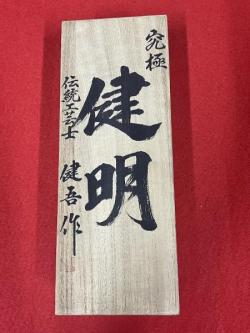 究極
健明
伝統工芸士 健吾作